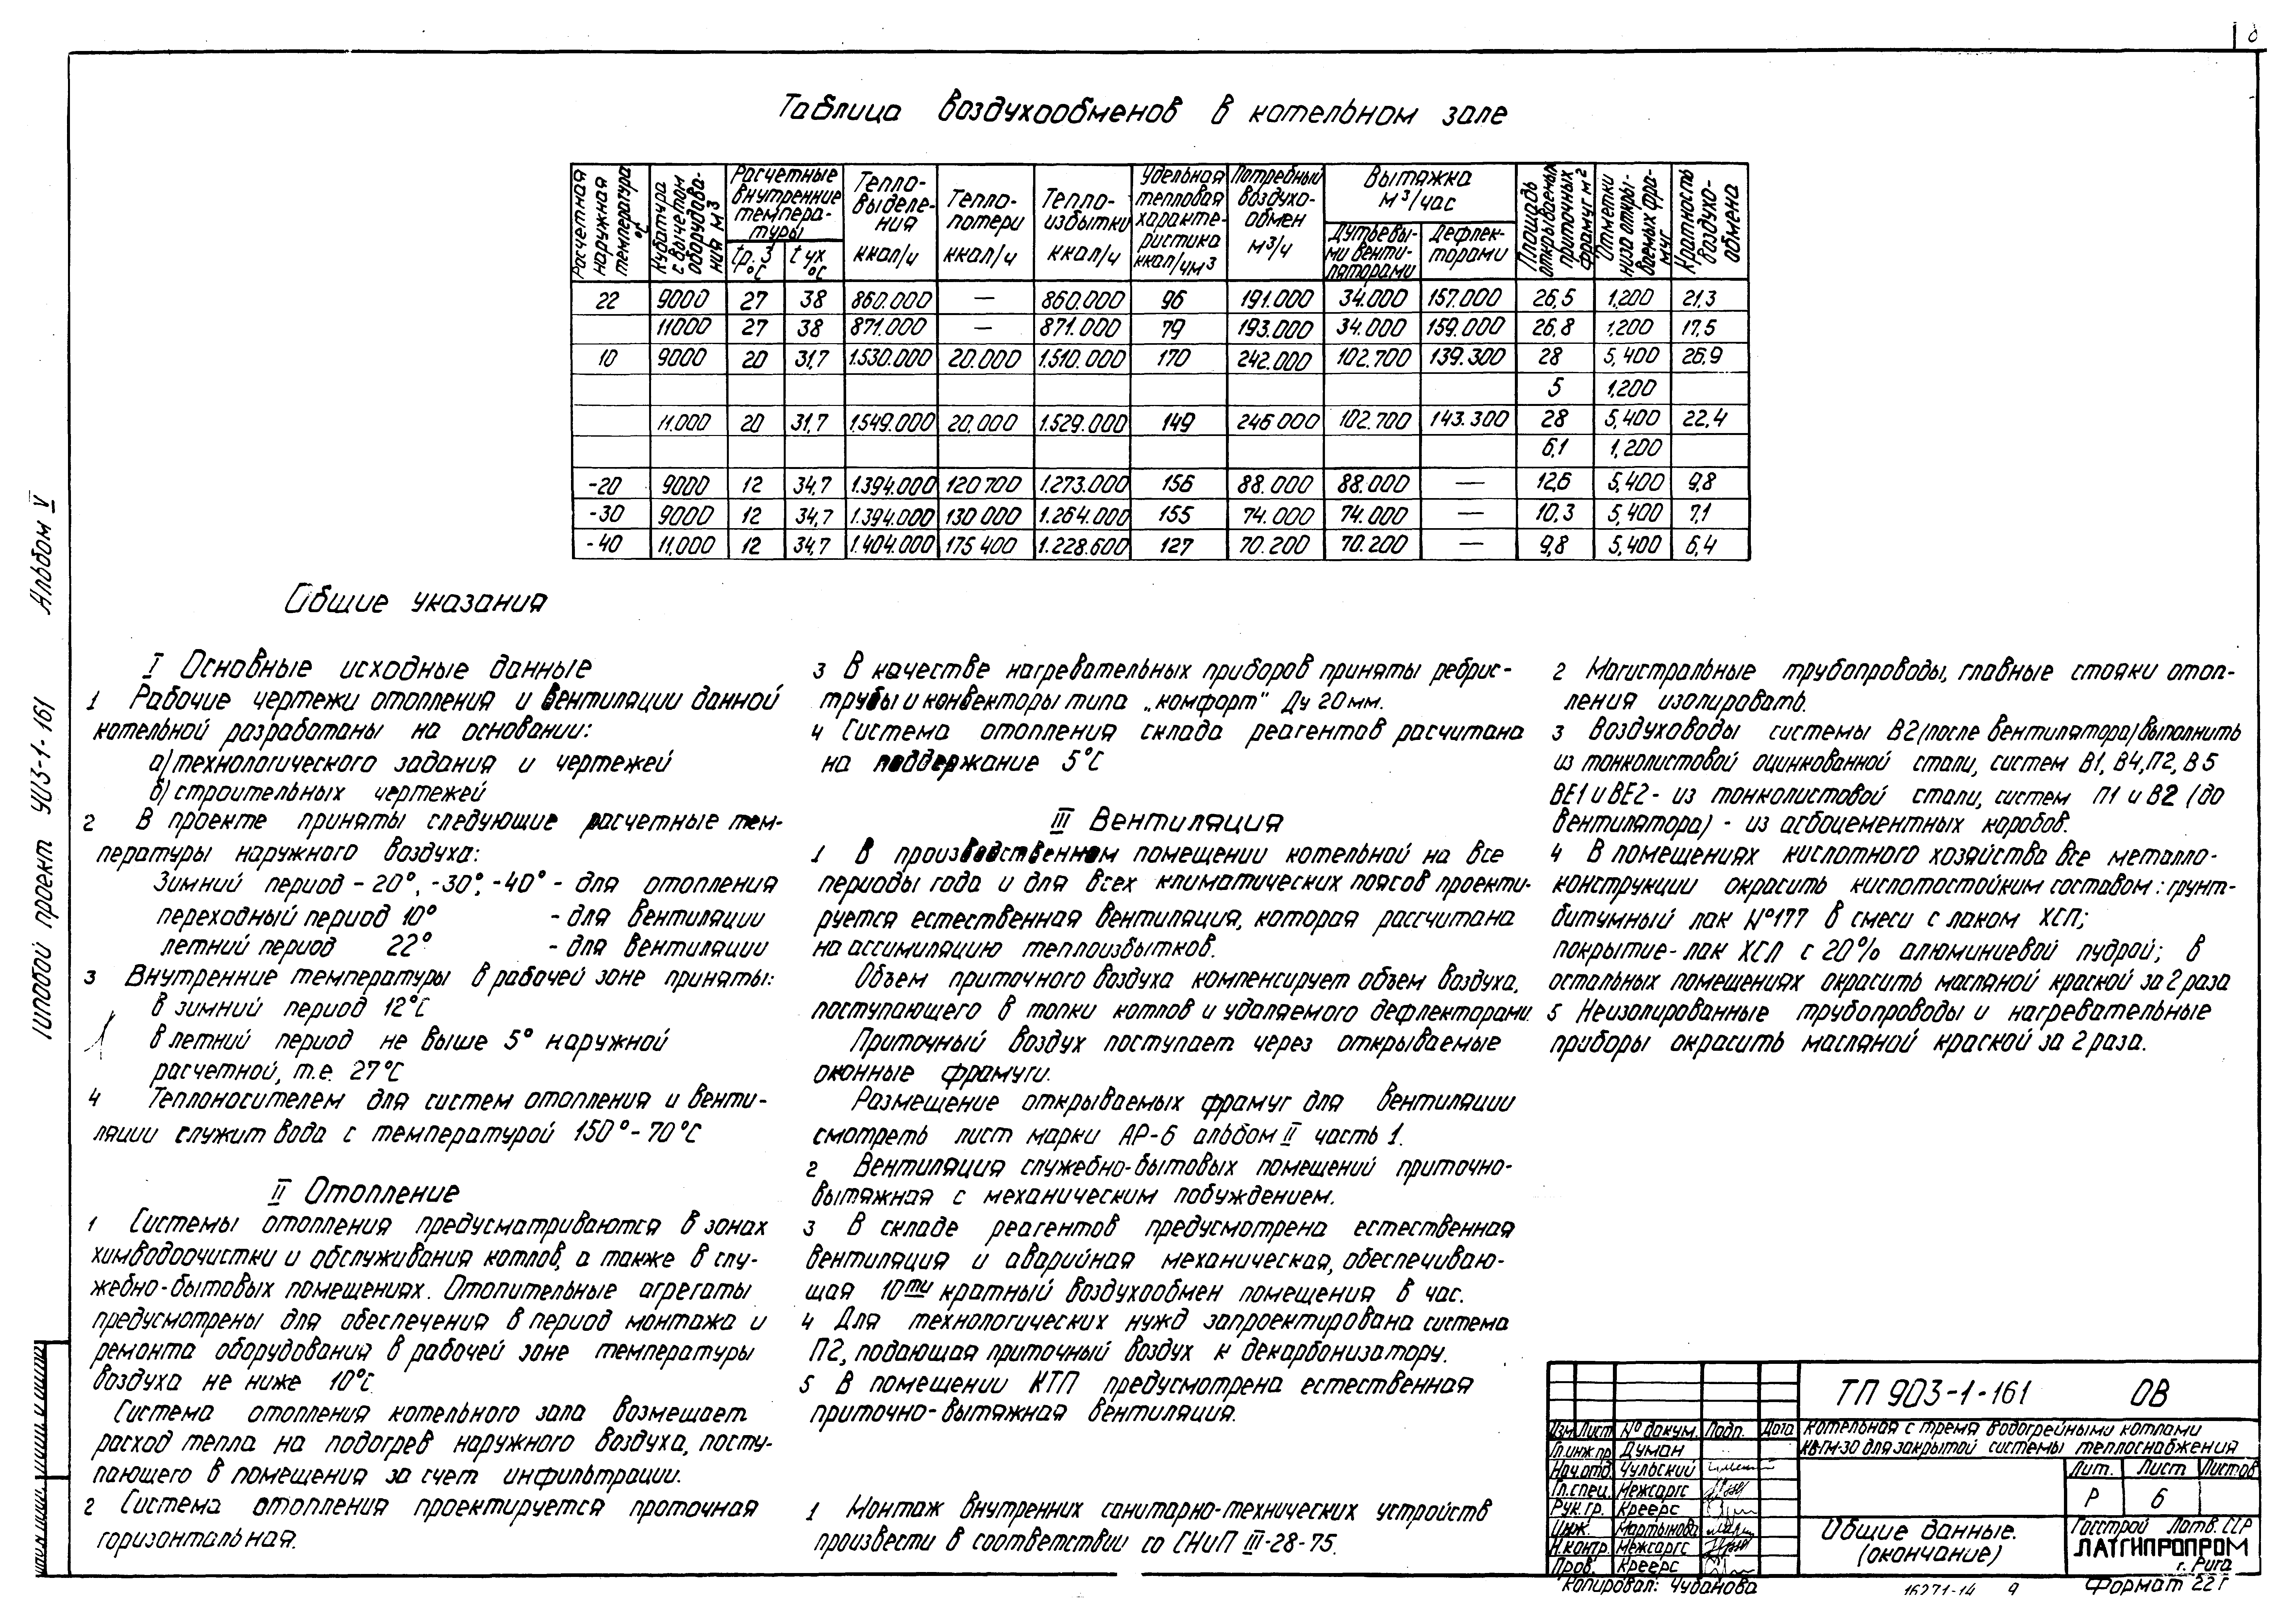 Таблица воздухообменов в котельном зале
Расчетная наружная температура °С
Кубатура с вычетом оборудования м3
Расчетные внутренние температуры
tр.з °С
tух °С
Тепло-выделения ккал/ч
Тепло-потери ккал/ч
Тепло-избытки ккал/ч
Удельная тепловая характеристика ккал/чм3
Потребный воздухо-обмен м3/ч
Вытяжка м3/час
Дутьевыми вентиляторами
Дефлекторами
Площадь открываемых приточных фрамуг м2
Отметки низа открываемых фрамуг
Кратность воздухо-обмена
22 9000 27 38 860.000 — 860.000 96 191.000 34.000 157.000 26,5 1,200 21,3
11000 27 38 871.000 — 871.000 79 193.000 34.000 159.000 26,8 1,200 17,5
10 9000 20 31,7 1.530.000 20.000 1.510.000 170 242.000 102.700 139.300 28 5,400 26,9
5 1,200
11.000 20 31,7 1.549.000 20.000 1.529.000 149 246000 102.700 143.300 28 5,400 22,4
6,1 1,200
-20 9000 12 34,7 1.394.000 120700 1.273.000 156 88.000 88.000 — 12,6 5,400 9,8
-30 9000 12 34,7 1.394.000 130000 1.264.000 155 74.000 74.000 — 10,3 5,400 7,1
-40 11.000 12 34,7 1.404.000 175400 1.228.600 127 70.200 70.200 — 9,8 5,400 6,4
Типовой проект 903-1-161 Альбом V
Общие указания
I Основные исходные данные
1 Рабочие чертежи отопления и вентиляции данной
котельной разработаны на основании:
а) технологического задания и чертежей
б) строительных чертежей
2 В проекте приняты следующие расчетные тем-
пературы наружного воздуха:
Зимний период -20°, -30°, -40° - для отопления
переходный период 10° - для вентиляции
летний период 22° - для вентиляции
3 Внутренние температуры в рабочей зоне приняты:
в зимний период 12°С
в летний период не выше 5° наружной
расчетной, т.е. 27°С
4 Теплоносителем для систем отопления и венти-
ляции служит вода с температурой 150°-70°С
II Отопление
1 Системы отопления предусматриваются в зонах
химводоочистки и обслуживания котлов, а также в слу-
жебно-бытовых помещениях. Отопительные агрегаты
предусмотрены для обеспечения в период монтажа и
ремонта оборудования в рабочей зоне температуры
воздуха не ниже 10°С.
Система отопления котельного зала возмещает
расход тепла на подогрев наружного воздуха, посту-
пающего в помещения за счет инфильтрации.
2 Система отопления проектируется проточная
горизонтальная.
3 В качестве нагревательных приборов приняты ребрис-
трубы и конвекторы типа „комфорт" Ду 20 мм.
4 Система отопления склада реагентов расчитана
на поддержание 5°С
III Вентиляция
1 В производственном помещении котельной на все
периоды года и для всех климатических поясов проекти-
руется естественная вентиляция, которая рассчитана
на ассимиляцию теплоизбытков.
Объем приточного воздуха компенсирует объем воздуха,
поступающего в топки котлов и удаляемого дефлекторами.
Приточный воздух поступает через открываемые
оконные фрамуги.
Размещение открываемых фрамуг для вентиляции
смотреть лист марки АР-6 альбом II часть 1.
2 Вентиляция служебно-бытовых помещений приточно-
вытяжная с механическим побуждением.
3 В складе реагентов предусмотрена естественная
вентиляция и аварийная механическая, обеспечиваю-
щая 10ти кратный воздухообмен помещения в час.
4 Для технологических нужд запроектирована система
П2, подающая приточный воздух к декарбонизатору.
5 В помещении КТП предусмотрена естественная
приточно-вытяжная вентиляция.
1 Монтаж внутренних санитарно-технических устройств
произвести в соответствии со СНиП III-28-75.
2 Магистральные трубопроводы, главные стояки отоп-
ления изолировать.
3 Воздуховоды системы В2 (после вентилятора) выполнить
из тонколистовой оцинкованной стали, систем В1, В4, П2, В5
ВЕ1 и ВЕ2 - из тонколистовой стали, систем П1 и В2 (до
вентилятора) - из асбоцементных коробов.
4 В помещениях кислотного хозяйства все металло-
конструкции окрасить кислотостойким составом: грунт-
битумный лак №177 в смеси с лаком ХСЛ;
покрытие - лак ХСЛ с 20% алюминиевой пудрой; в
остальных помещениях окрасить масляной краской за 2 раза
5 Неизолированные трубопроводы и нагревательные
приборы окрасить масляной краской за 2 раза.
ТП 903-1-161 ОВ
Изм Лист № докум. Подп. Дата
Котельная с тремя водогрейными котлами
КВ-ГМ-30 для закрытой системы теплоснабжения
Гл.инж.пр. Думан
Нач.отд. Чульский
Гл.спец. Межсаргс
Рук.гр. Креерс
Инж. Мартынова
Н.контр. Межсаргс
Пров. Креерс
Лит. Лист Листов
Р 6
Общие данные.
(окончание)
Госстрой Латв. ССР
ЛАТГИПРОПРОМ
г. Рига
Копировал: Чубанова
16271-14 9
Формат 22 г